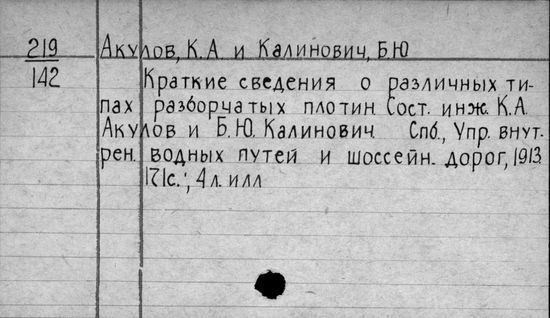 219 Акулов, К.А. и Калинович, Б.Ю
142 Краткие сведения о различных ти-
пах разборчатых плотин. Сост. инж. К.А.
Акулов и Б.Ю. Калинович Спб., Упр. внут.
рен. водных путей и шоссейн. дорог, 1913
171с.; 4 л. илл